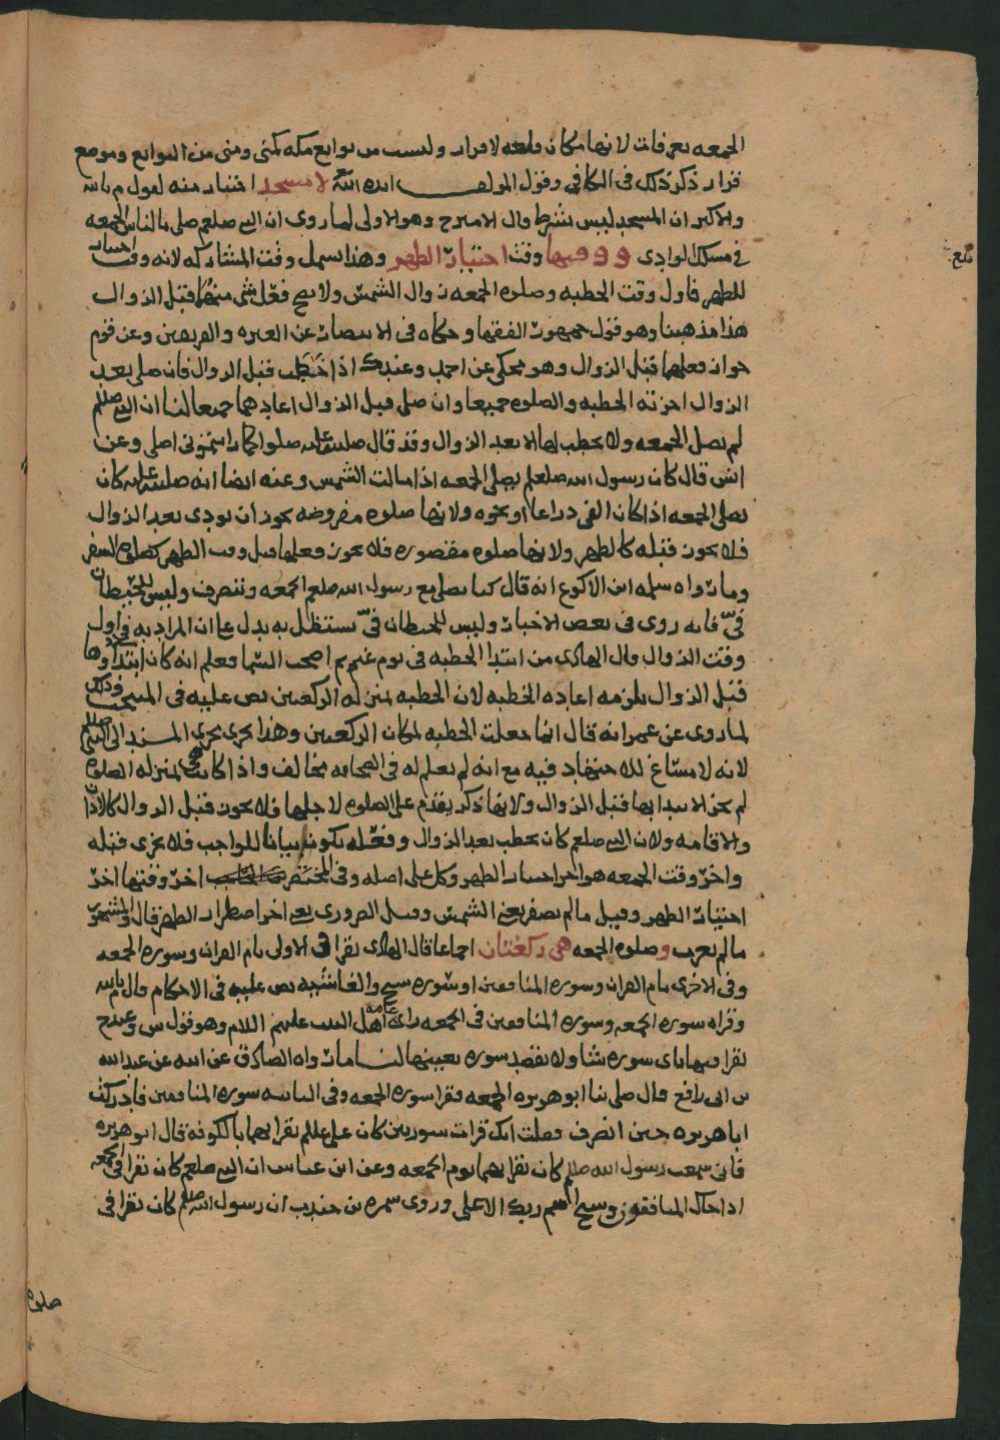 الجمعه بعرفات لانها مكان قلعه لا قرار وليست من توابع مكه كمنى ومنى من التوابع وموضع
قرار ذكر ذلك في الكافي وقول المولف ايده الله لا مسجد اختيار منه لقول م بالله
والاكثر ان المسجد ليس بشرط قال الامير ح وهو الاولى لما روي ان النبي صلعم صلى بالناس الجمعه
في مسلك الوادي ووقتها وقت اختيار الظهر وهذا يشمل وقت المشاركه لانه وقت اختيار
للظهر فاول وقت الخطبه وصلوه الجمعه زوال الشمس ولا يصح فعل شي منهما قبل الزوال
هذا مذهبنا وهو قول جمهور الفقها وحكاه في الانتصار عن العتره والفريقين وعن قوم
جواز فعلهما قبل الزوال وهو محكي عن احمد وعند ك اذا خطب قبل الزوال فان صلى بعد
الزوال اجزته الخطبه والصلوه جميعا وان صلى قبل الزوال اعادهما جميعا لنا ان النبي صلعم
لم يصل الجمعه ولا يخطب لها الا بعد الزوال وقد قال صلى الله عليه صلوا كما رايتموني اصلي وعن
انس قال كان رسول الله صلعلم يصلي الجمعه اذا مالت الشمس وعنه ايضا انه صلى الله عليه كان
يصلي الجمعه اذا كان الفي ذراعا او نحوه ولانها صلوه مفروضه يجوز ان تودى بعد الزوال
فلا يجوز قبله كالظهر ولانها صلوه مقصوره فلا يجوز فعلها قبل وقت الظهر كصلوه السفر
وما رواه سلمه ابن الاكوع انه قال كنا نصلي مع رسول الله صلعم الجمعه وننصرف وليس للحيطان
فيّ فانه روي في بعض الاخبار وليس للحيطان فيّ يستظل به يدل على ان المراد به في اول
وقت الزوال قال الهادي من ابتدا الخطبه في يوم غيم ثم اصحت السما فعلم انه كان ابتداوها
قبل الزوال يلزمه اعاده الخطبه لان الخطبه بمنزله الركعتين نص عليه في المنتخب وذلك
لما روي عن عمر انه قال انما جعلت الخطبه لمكان الركعتين وهذا يجري مجرى المسند الى النبي صلعم
لانه لا مساغ للاجتهاد فيه مع انه لم يعلم له في الصحابه مخالف واذا كانت هي بمنزله الصلوه
لم يجز الابتدا بها قبل الزوال ولانها ذكر يقدم على الصلوه لاجلها فلا يجوز قبل الزوال كالاذان
والاقامه ولان النبي صلعم كان يخطب بعد الزوال وفعله يكون بيانا للواجب فلا يجزي قبله
واخر وقت الجمعه هو اخر اختيار الظهر وكل على اصله وفي المختصر اخر وقتها اخر
اختيار الظهر وقيل ما لم يصفر يعني الشمس وقيل الضروري يعني اخر اضطرار الظهر قال والمشهور
ما لم يغرب وصلوه الجمعه هي ركعتان اجماعا قال الهادي يقرا في الاولى بام القران وسوره الجمعه
وفي الاخرى بام القران وسوره المنافقين او سوره سبح والغاشيه نص عليه في الاحكام قال م بالله
وقراه سوره الجمعه وسوره المنافقين في الجمعه راي عامه اهل البيت عليهم اللام وهو قول ش وعند ح
يقرا فيها باي سوره شا ولا يقصد سوره بعينها لنا ما رواه الصادق عن ابيه عن عبدالله
بن ابي رافع قال صلى بنا ابو هريره الجمعه فقرا سوره الجمعه وفي الثانيه سوره المنافقين فادركت
ابا هريره حين انصرف فقلت انك قرات سورتين كان علي عللم يقرا بهما بالكوفه قال ابو هريره
فاني سمعت رسول الله صلعم كان يقرا بهما يوم الجمعه وعن ابن عباس ان النبي صلعم كان يقرا في الجمعه
اذا جاك المنافقون وسبح اسم ربك الاعلى وروى سمره بن جندب ان رسول الله صلعم كان يقرا في
صلوه